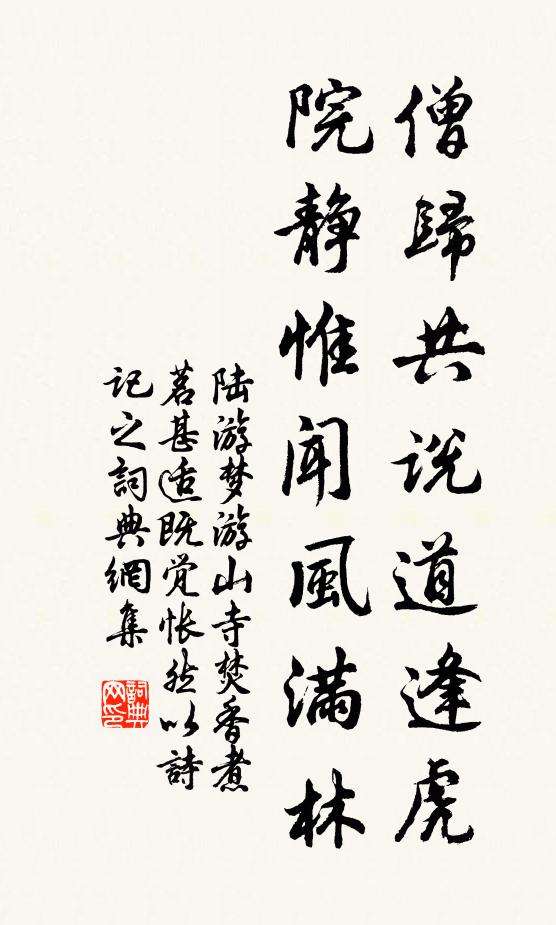 僧歸共说道逢虎
院静惟闻風满林
陆游梦游山寺焚香煮
茗甚适既觉怅然以詩
记之詞典網集
詞典网印